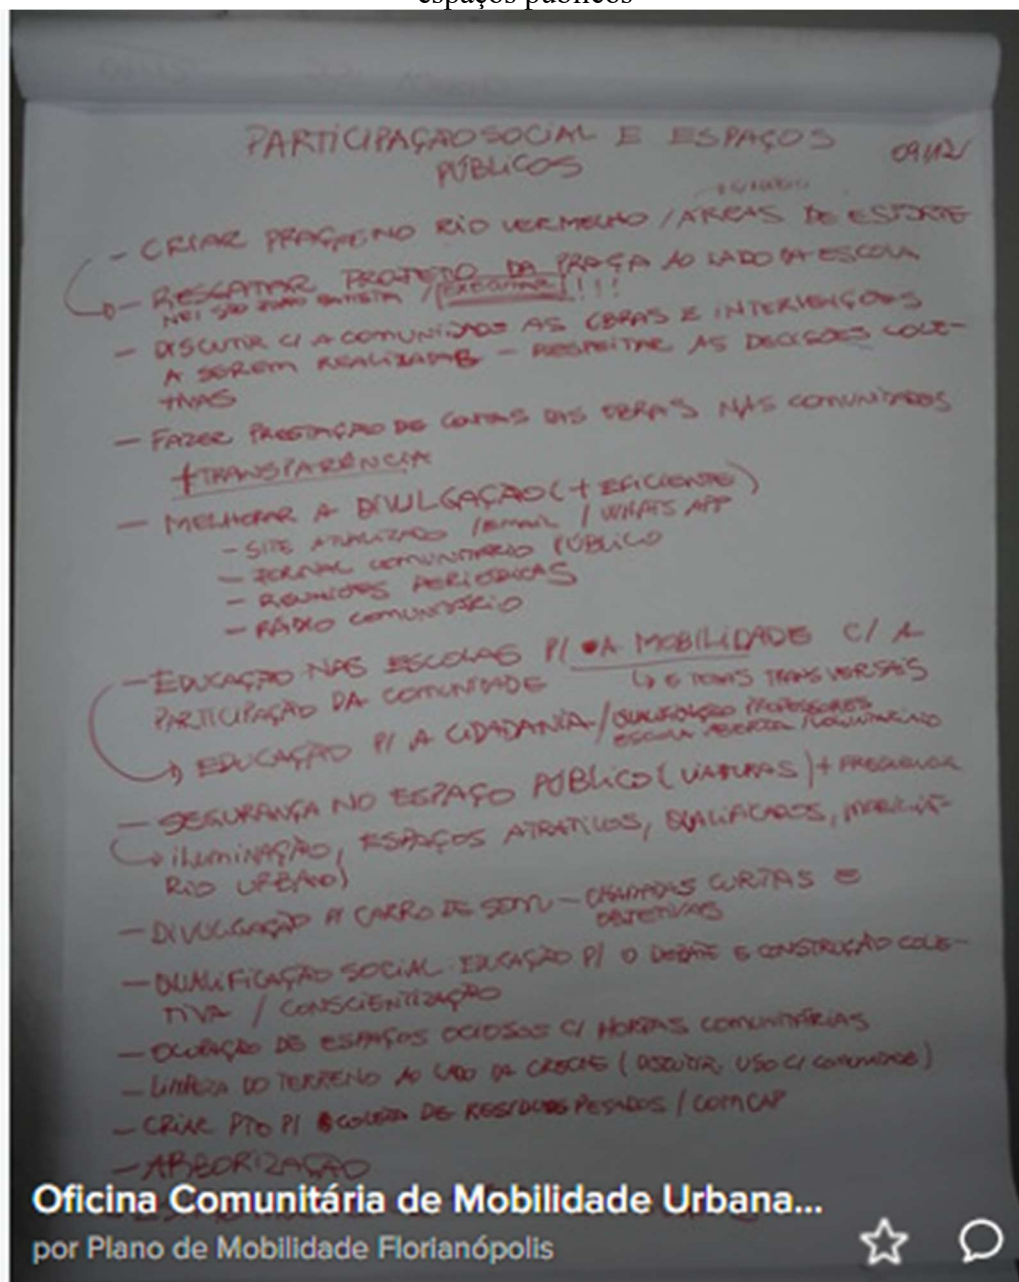 espaços públicos
PARTICIPAÇÃO SOCIAL E ESPAÇOS
PÚBLICOS
09/12/
- CRIAR PRAÇA NO RIO VERMELHO / ÁREAS DE ESPORTE
- RESGATAR PROJETO DA PRAÇA AO LADO DA ESCOLA
NEI SÃO JOÃO BATISTA / EXECUTAR !!!
- DISCUTIR C/ A COMUNIDADE AS OBRAS E INTERVENÇÕES
A SEREM REALIZADAS - RESPEITAR AS DECISÕES COLE-
TIVAS
- FAZER PRESTAÇÃO DE CONTAS DAS OBRAS NAS COMUNIDADES
+ TRANSPARÊNCIA
- MELHORAR A DIVULGAÇÃO (+ EFICIENTE)
- SITE ATUALIZADO / EMAIL / WHATS APP
- JORNAL COMUNITÁRIO PÚBLICO
- REUNIÕES PERIÓDICAS
- RÁDIO COMUNITÁRIO
- EDUCAÇÃO NAS ESCOLAS P/ A MOBILIDADE C/ A
PARTICIPAÇÃO DA COMUNIDADE
↳ E TEMAS TRANSVERSAIS
→ EDUCAÇÃO P/ A CIDADANIA / QUALIFICAÇÃO PROFESSORES
ESCOLA ABERTA / VOLUNTARIADO
- SEGURANÇA NO ESPAÇO PÚBLICO (VIATURAS) +
↳ ILUMINAÇÃO, ESPAÇOS ATRATIVOS, QUALIFICADOS, MOBILIÁ-
RIO URBANO)
- DIVULGAÇÃO P/ CARRO DE SOM - CHAMADAS CURTAS E
OBJETIVAS
- QUALIFICAÇÃO SOCIAL EDUCAÇÃO P/ O DEBATE E CONSTRUÇÃO COLE-
TIVA / CONSCIENTIZAÇÃO
- OCUPAÇÃO DE ESPAÇOS OCIOSOS C/ HORTAS COMUNITÁRIAS
- LIMPEZA DO TERRENO AO LADO DA CRECHE (DISCUTIR USO C/ COMUNIDADE)
- CRIAR PTO P/ COLETA DE RESÍDUOS PESADOS / COMCAP
- ARBORIZAÇÃO
Oficina Comunitária de Mobilidade Urbana...
por Plano de Mobilidade Florianópolis